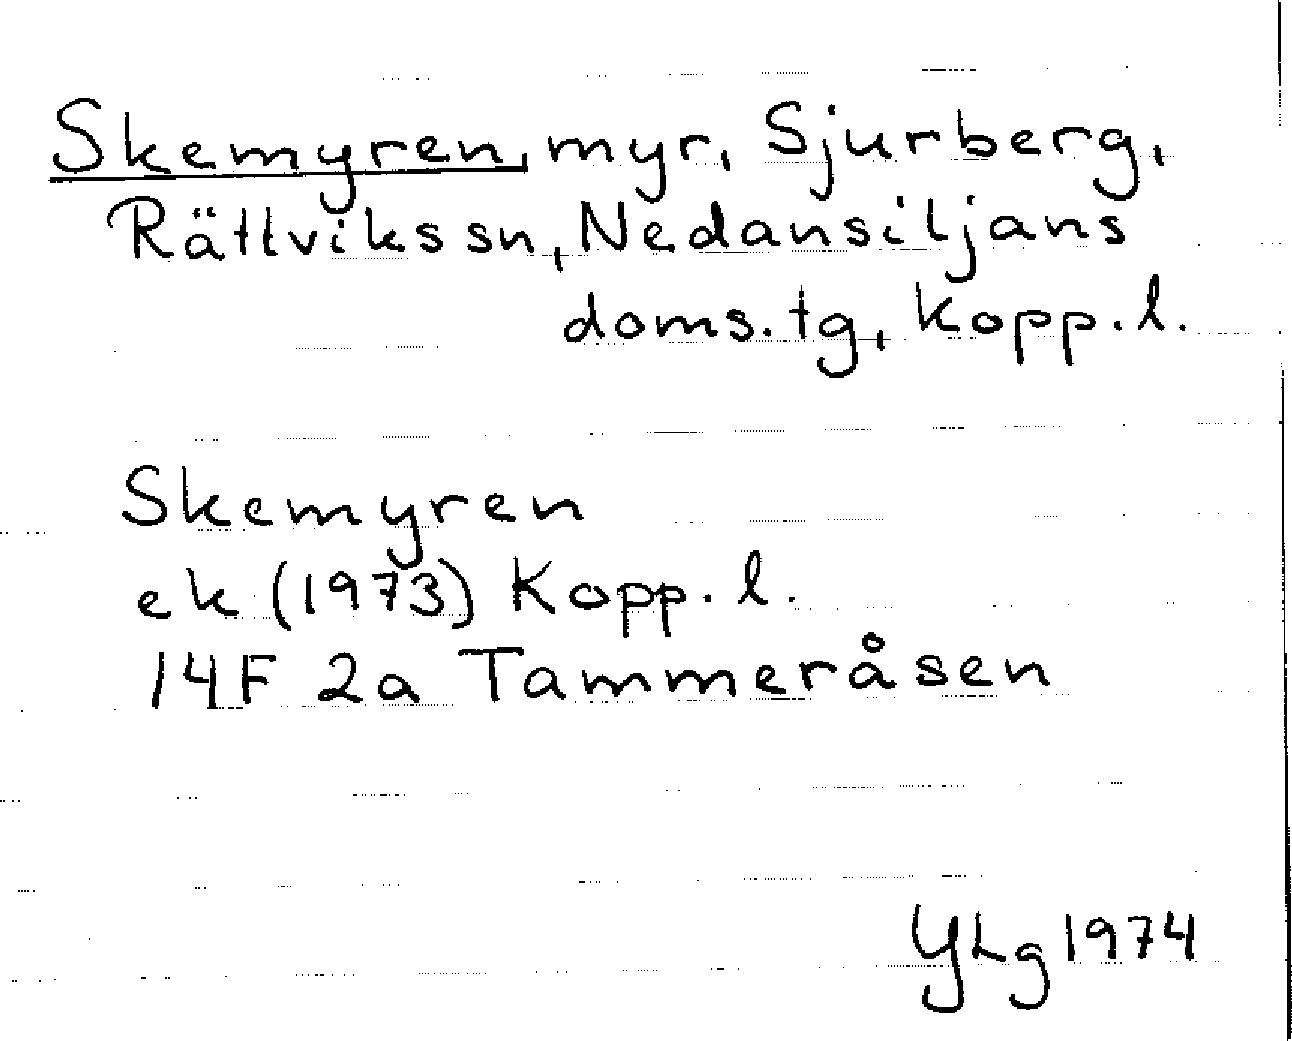 Skemyren, myr, Sjurberg,
Rättviks sn, Nedansiljans
doms.tg, Kopp.l.
Skemyren
ek (1973) Kopp.l.
14F 2a Tammeråsen
YLg 1974